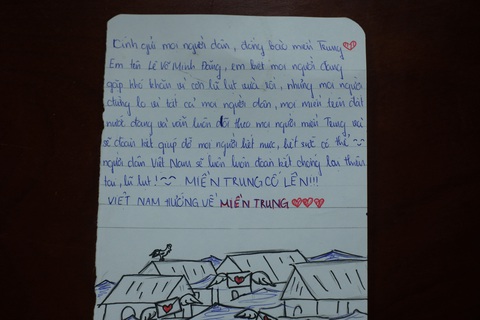 Kính gửi mọi người dân, đồng bào miền Trung
Em tên Lê Võ Minh Đăng, em biết mọi người đang
gặp khó khăn vì cơn lũ lụt vừa rồi, nhưng mọi người
đừng lo vì tất cả mọi người dân, mọi miền trên đất
nước đang và vẫn luôn dõi theo mọi người miền Trung và
sẽ đoàn kết giúp đỡ mọi người hết mức, hết sức có thể
người dân Việt Nam sẽ luôn luôn đoàn kết chống lại thiên
tai, lũ lụt! MIỀN TRUNG CỐ LÊN!!!
VIỆT NAM HƯỚNG VỀ MIỀN TRUNG